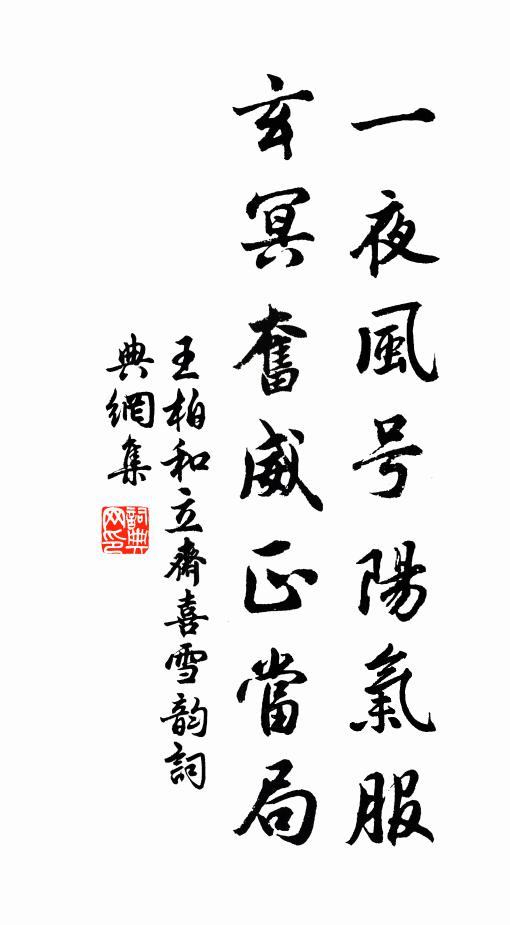 一夜風号陽氣服
玄冥奮威正當局
王柏和立齋喜雪韵詞
典網集
詞典
网印